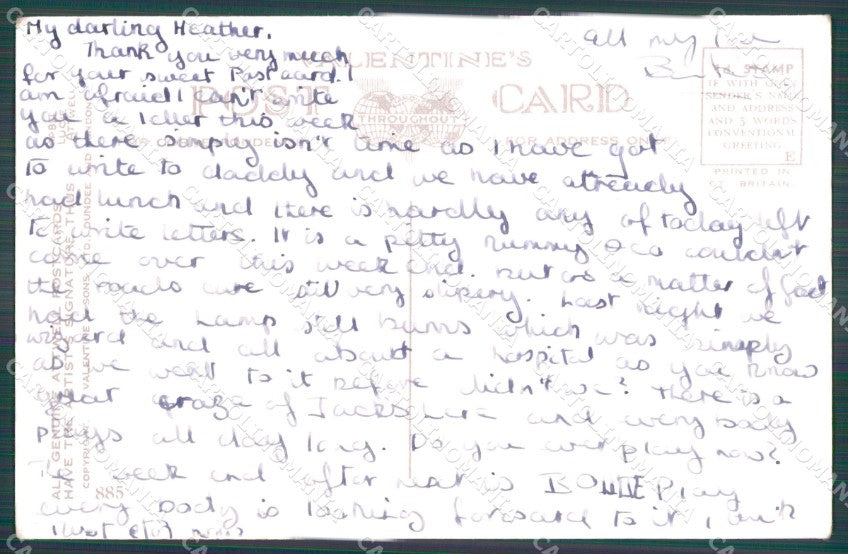 My darling Heather,
Thank you very much
for your sweet Postcard. I
am afraid I can't write
you a letter this week
as there simply isn't time as I have got
to write to daddy and we have altready
had lunch and there is hardly any of today left
to write letters. It is a petty mummy couldnt
come over this week end. But as a matter of fact
the roads are still very slipery. Last night we
had the Lamp still Burns which was simply
wizard and all about a hospital as you know
as we went to it before didn't we? There is a
great craze of Jacks here and every body
plays all day long. Do you ever play now?
The week end after next is play
every body is looking forward to it I
all my
VALENTINE'S
POST CARD
THROUGHOUT
FOR ADDRESS ONLY
STAMP
IF WITH ONLY
SENDER'S NAME
AND ADDRESS
AND 5 WORDS
CONVENTIONAL
GREETING.
E
PRINTED IN
GT. BRITAIN.
ALL GENUINE ATTWELL POSTCARDS
HAVE THE ARTIST'S SIGNATURE THUS
COPYRIGHT VALENTINE & SONS, LTD. DUNDEE AND LONDON
885
CARTOLINOMANIA